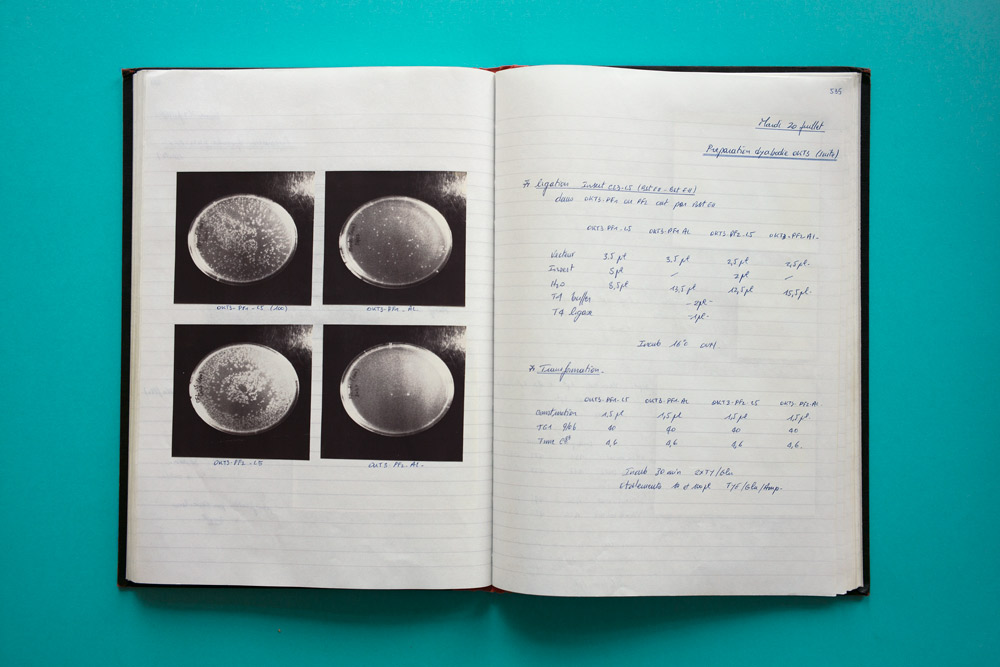 OKT3-PF1-L5 (100)
OKT3-PF1-AL
OKT3-PF2-L5
OKT3-PF2-AL-
535
Mardi 20 Juillet
Préparation dyabodie OKT3 (suite)
ligation Insert CL3-L5
dans OKT3-PF1 ou PF2 cut par BstEII
OKT3-PF1-L5 OKT3-PF1-AL OKT3-PF2-L5 OKT3-PF2-AL-
Vecteur 3,5 µl 3,5 µl 2,5 µl 2,5 µl-
Insert 5 µl - 2 µl -
H2O 8,5 µl 13,5 µl 13,5 µl 15,5 µl-
T4 buffer - 2 µl -
T4 ligase - 1 µl -
Incub 16°C OVN
Transformation.
OKT3-PF1-L5 OKT3-PF1-AL OKT3-PF2-L5 OKT3-PF2-AL
Construction 1,5 µl 1,5 µl 1,5 µl 1,5 µl
TG1 40 40 40 40
4,6 4,6 4,6 4,6
Incub 30 min 2xTY/Glu
étalements 10 et 100 µl TYE/Glu/Amp.